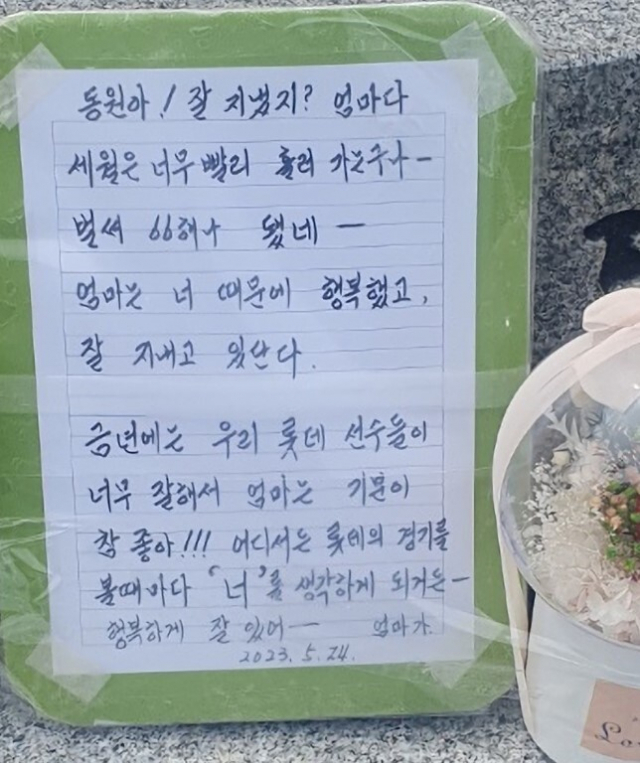 동원아! 잘 지냈지? 엄마다
세월은 너무 빨리 흘러 가는구나-
벌써 66해나 됐네 -
엄마는 너 때문에 행복했고,
잘 지내고 있산다.
금년에는 우리 롯데 선수들이
너무 잘해서 엄마는 기분이
참 좋아!!! 어디서든 롯데의 경기를
볼때마다 '너'를 생각하게 되거든-
행복하게 잘 있어- 엄마가.
2023. 5. 24.